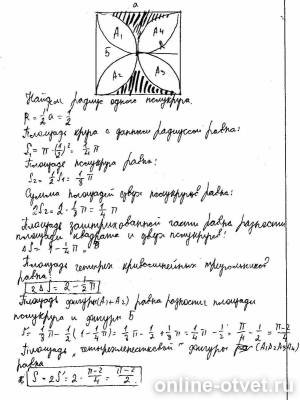 a
A₁ A₄
Б R
A₂ A₃
Найдем радиус одного полукруга.
R = ½a = ½
Площадь круга с данным радиусом равна:
S₁ = π·(½)² = ¼π
Площадь полукруга равна:
S₂ = ½S₁ = ⅛π
Сумма площадей двух полукругов равна:
2S₂ = 2·⅛π = ¼π
Площадь заштрихованной части равна разности
площади квадрата и двух полукругов:
ΔS = 1 - ¼π
Площадь четырех криволинейных треугольников
равна:
2ΔS = 2 - ½π
Площадь фигуры (A₁+A₂) равна разности площади
полукруга и фигуры Б
S' = ⅛π - ½(1 - ¼π) = ⅛π - ½ + ⅛π = ¼π - ½ = π/4 - ½ = π-2/4
Площадь "четырехлепестковой" фигуры (A₁A₂A₃A₄)
равна
S = 2S' = 2·π-2/4 = π-2/2
online-otvet.ru